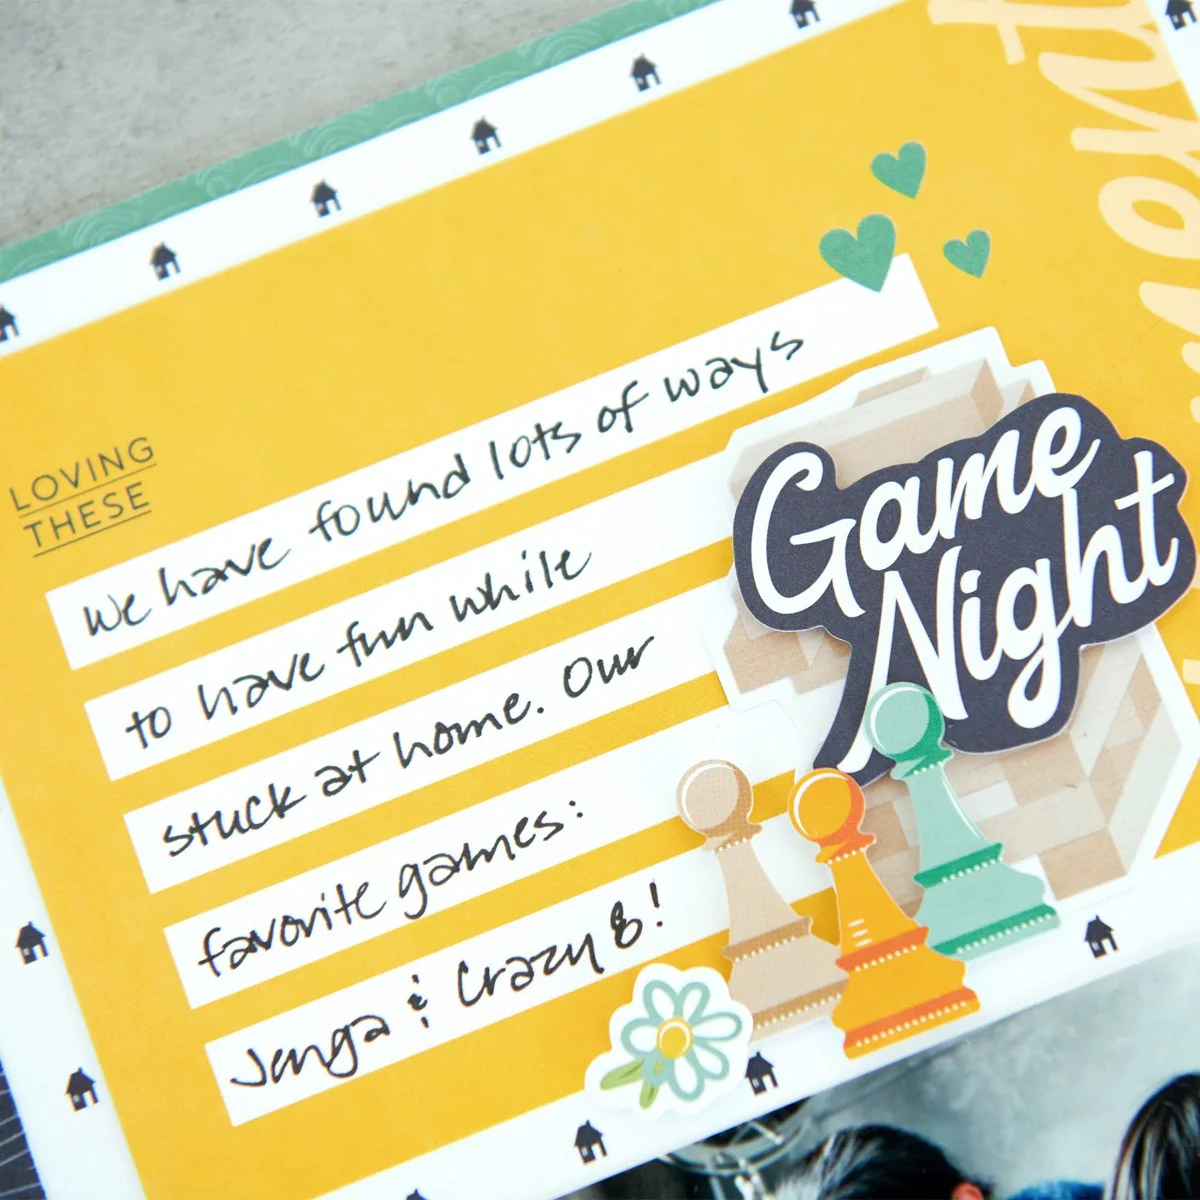 LOVING
THESE
We have found lots of ways
to have fun while
stuck at home. Our
favorite games:
Jenga & Crazy 8!
Game
Night